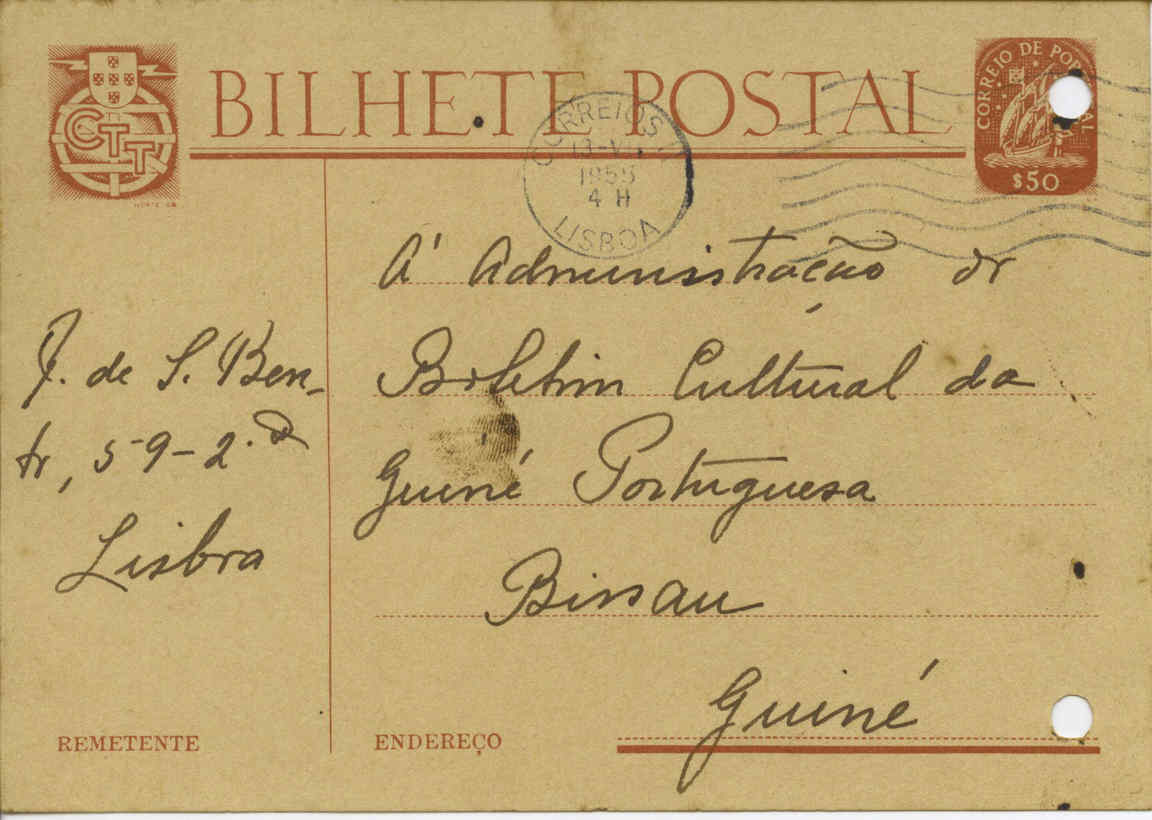 CTT
BILHETE POSTAL
CORREIO DE PORTUGAL
$50
CORREIOS
13-VI
1955
4 H
LISBOA
À Administração do
Boletim Cultural da
Guiné Portuguesa
Bissau
Guiné
R. de S. Ben-
to, 59-2.º D
Lisboa
REMETENTE
ENDEREÇO